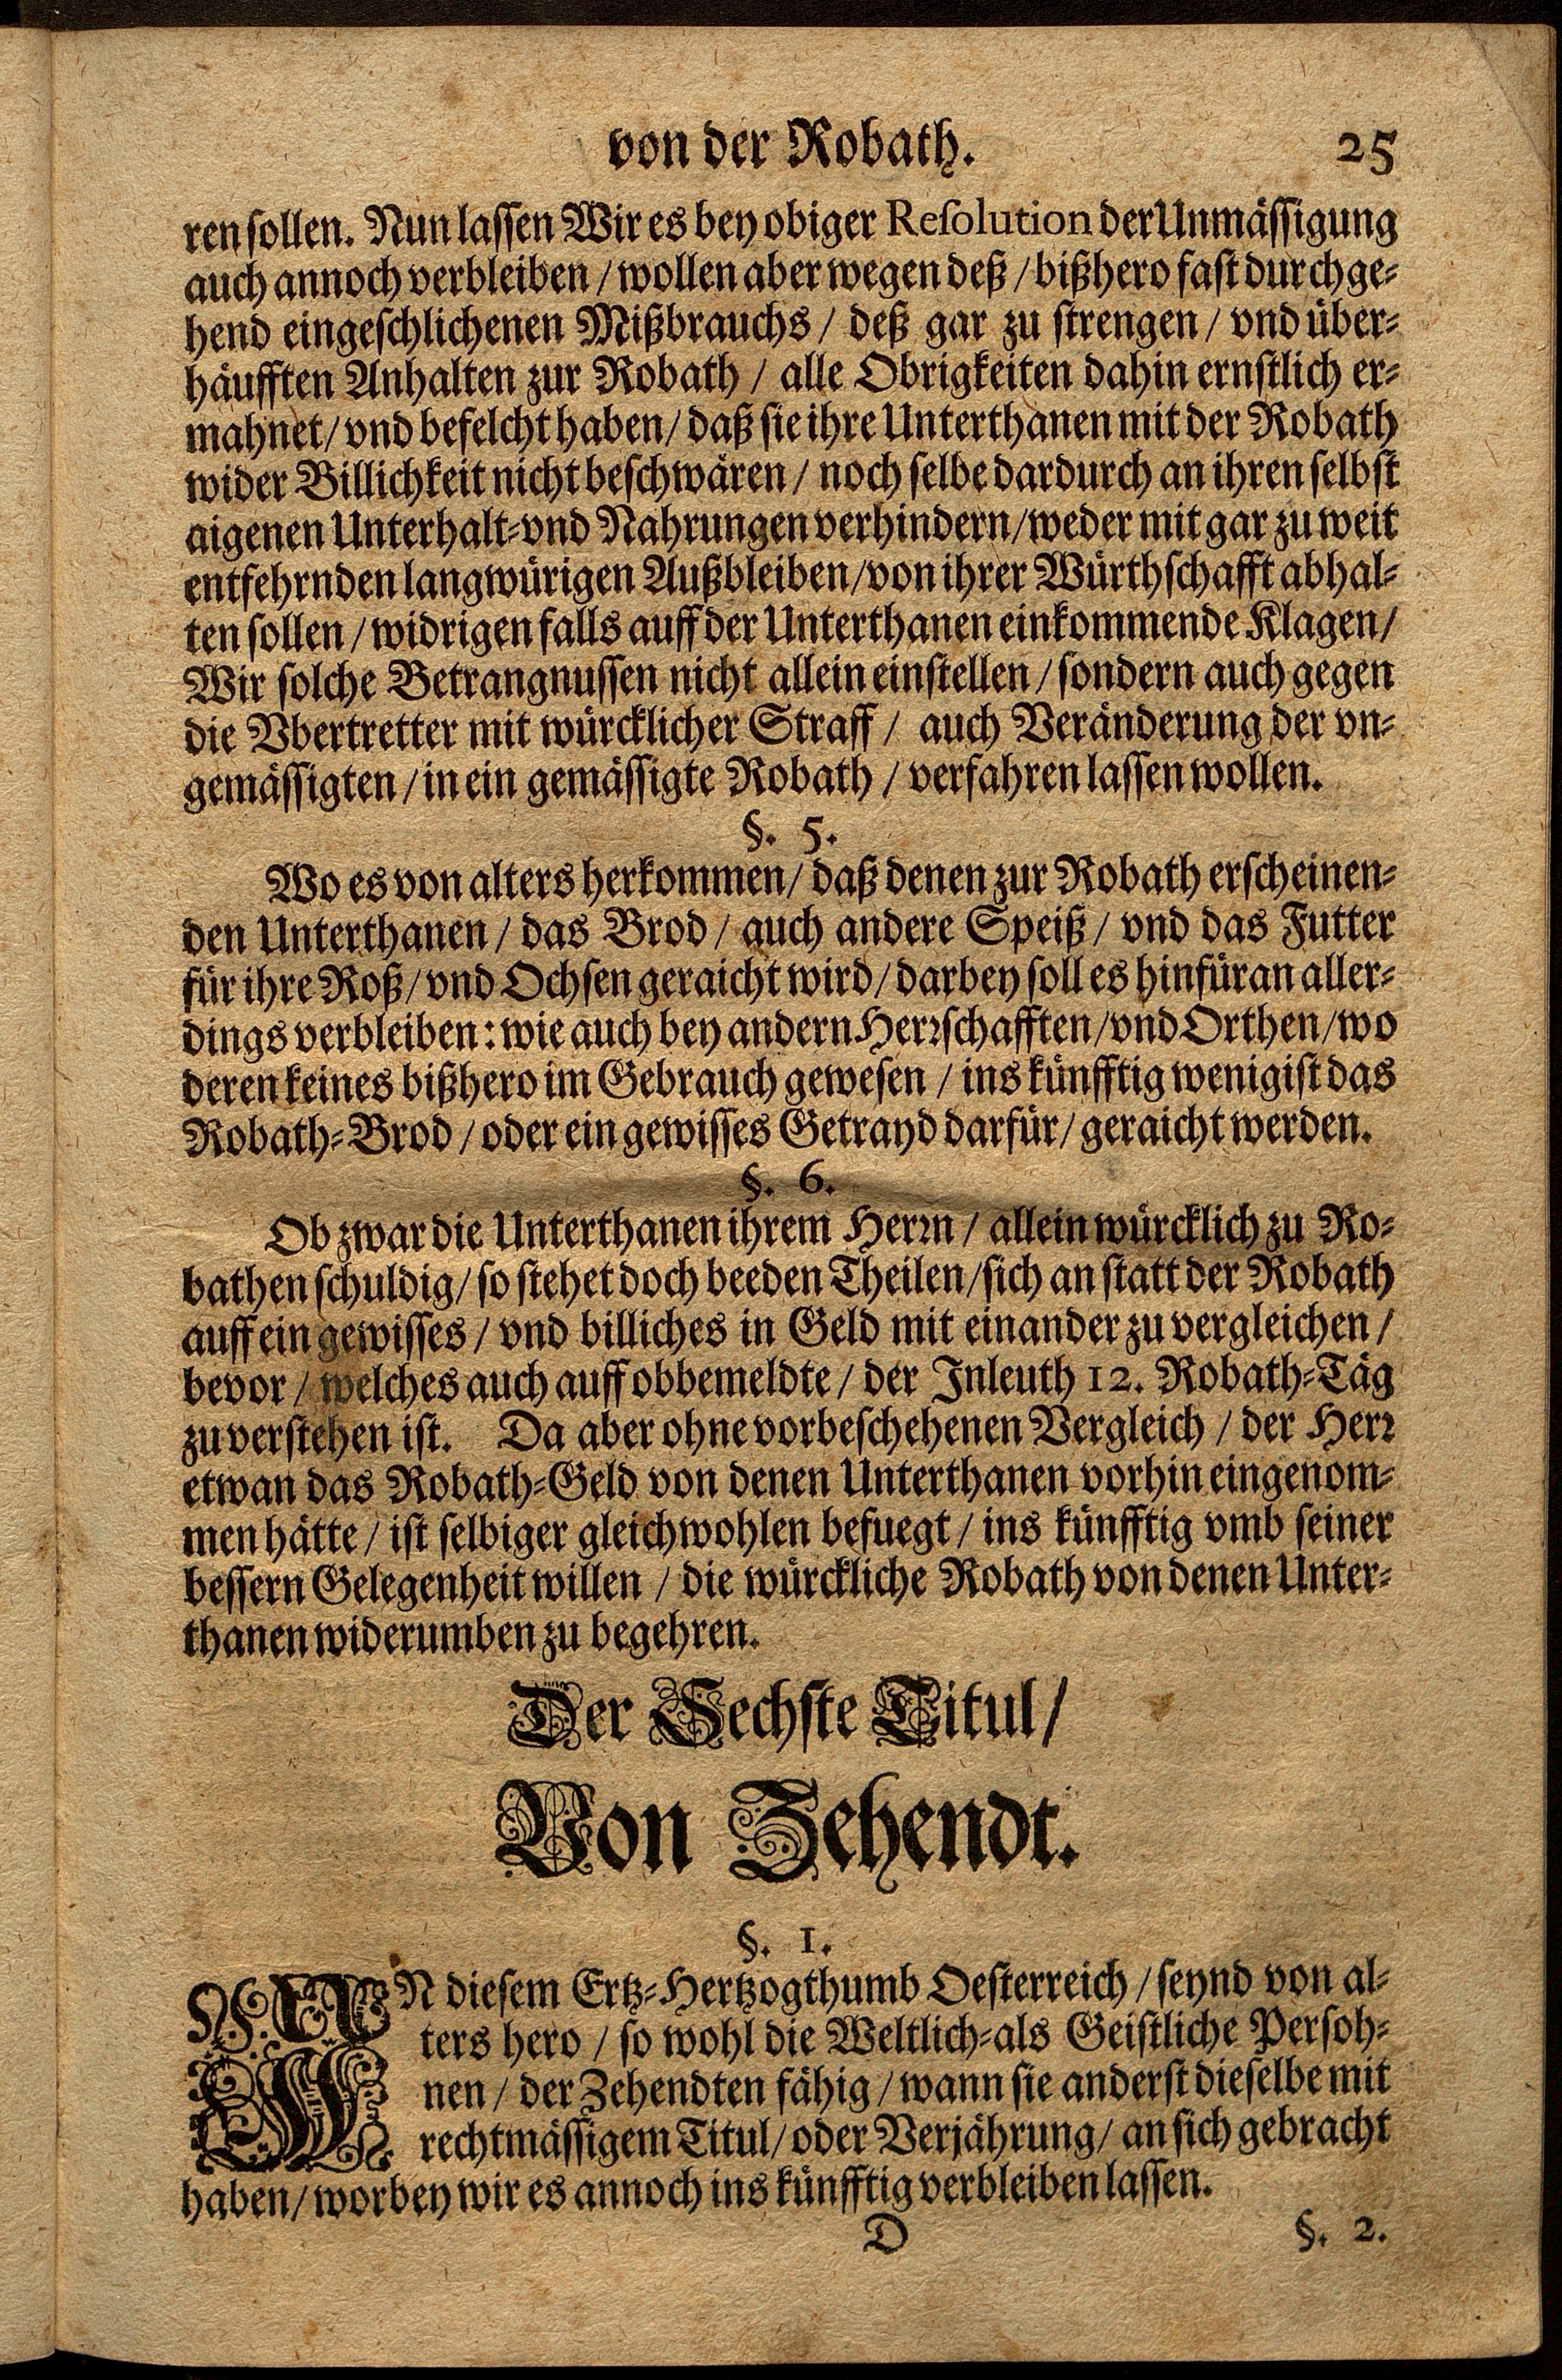 von der Robath. 25
ren sollen. Nun lassen Wir es bey obiger Resolution der Unmässigung
auch annoch verbleiben / wollen aber wegen deß / bißhero fast durchge-
hend eingeschlichenen Mißbrauchs / deß gar zu strengen / vnd über-
häufften Anhalten zur Robath / alle Obrigkeiten dahin ernstlich er-
mahnet / vnd befelcht haben / daß sie ihre Unterthanen mit der Robath
wider Billichkeit nicht beschwären / noch selbe dardurch an ihren selbst
aigenen Unterhalt- vnd Nahrungen verhindern / weder mit gar zu weit
entfehrnden langwürigen Außbleiben / von ihrer Würthschafft abhal-
ten sollen / widrigen falls auff der Unterthanen einkommende Klagen /
Wir solche Betrangnussen nicht allein einstellen / sondern auch gegen
die Vbertretter mit würcklicher Straff / auch Veränderung der vn-
gemässigten / in ein gemässigte Robath / verfahren lassen wollen.
§. 5.
Wo es von alters herkommen / daß denen zur Robath erscheinen-
den Unterthanen / das Brod / auch andere Speiß / vnd das Futter
für ihre Roß / vnd Ochsen geraicht wird / darbey soll es hinfüran aller-
dings verbleiben: wie auch bey andern Herrschafften / vnd Orthen / wo
deren keines bißhero im Gebrauch gewesen / ins künfftig wenigist das
Robath-Brod / oder ein gewisses Getrayd darfür / geraicht werden.
§. 6.
Ob zwar die Unterthanen ihrem Herrn / allein würcklich zu Ro-
bathen schuldig / so stehet doch beeden Theilen / sich an statt der Robath
auff ein gewisses / vnd billiches in Geld mit einander zu vergleichen /
bevor / welches auch auff obbemeldte / der Inleuth 12. Robath-Täg
zu verstehen ist. Da aber ohne vorbeschehenen Vergleich / der Herr
etwan das Robath-Geld von denen Unterthanen vorhin eingenom-
men hätte / ist selbiger gleichwohlen befuegt / ins künfftig vmb seiner
bessern Gelegenheit willen / die würckliche Robath von denen Unter-
thanen widerumben zu begehren.
Der Sechste Titul /
Von Zehendt.
§. 1.
IN diesem Ertz-Hertzogthumb Oesterreich / seynd von al-
ters hero / so wohl die Weltlich- als Geistliche Persoh-
nen / der Zehendten fähig / wann sie anderst dieselbe mit
rechtmässigem Titul / oder Verjährung / an sich gebracht
haben / worbey wir es annoch ins künfftig verbleiben lassen.
D §. 2.